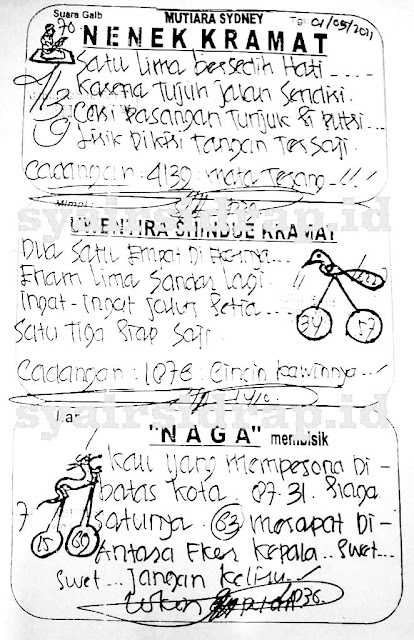 Suara Gaib MUTIARA SYDNEY Tgl 01/05/2021
70
NENEK KRAMAT
Satu Lima bersedih Hati ....
Karena Tujuh jalan Sendiri.
Cari Pasangan Tunjuk Si Putri...
Lirik Dikiri Tangan Tersaji.
Cadangan : 4139 Mata Terang...!!!
Mimpi
syairsidrap.id
KRAMAT
Dua Satu Empat Di Ekornya...
Enam Lima Sandar Lagi.
Ingat-Ingat Jalur Setia...
Satu Tiga Siap Saji.
34 57
Cadangan : 1076 : Cincin Kawinnya..!
syairsidrap.id
"NAGA" membisik
Kaki yang Mempesona Di -
batas Kota 07.31. Siaga
7
Satunya (63) merapat Di -
15 69
Antara Ekor Kepala.. Swet...
Swet... Jangan Keliru
1036.